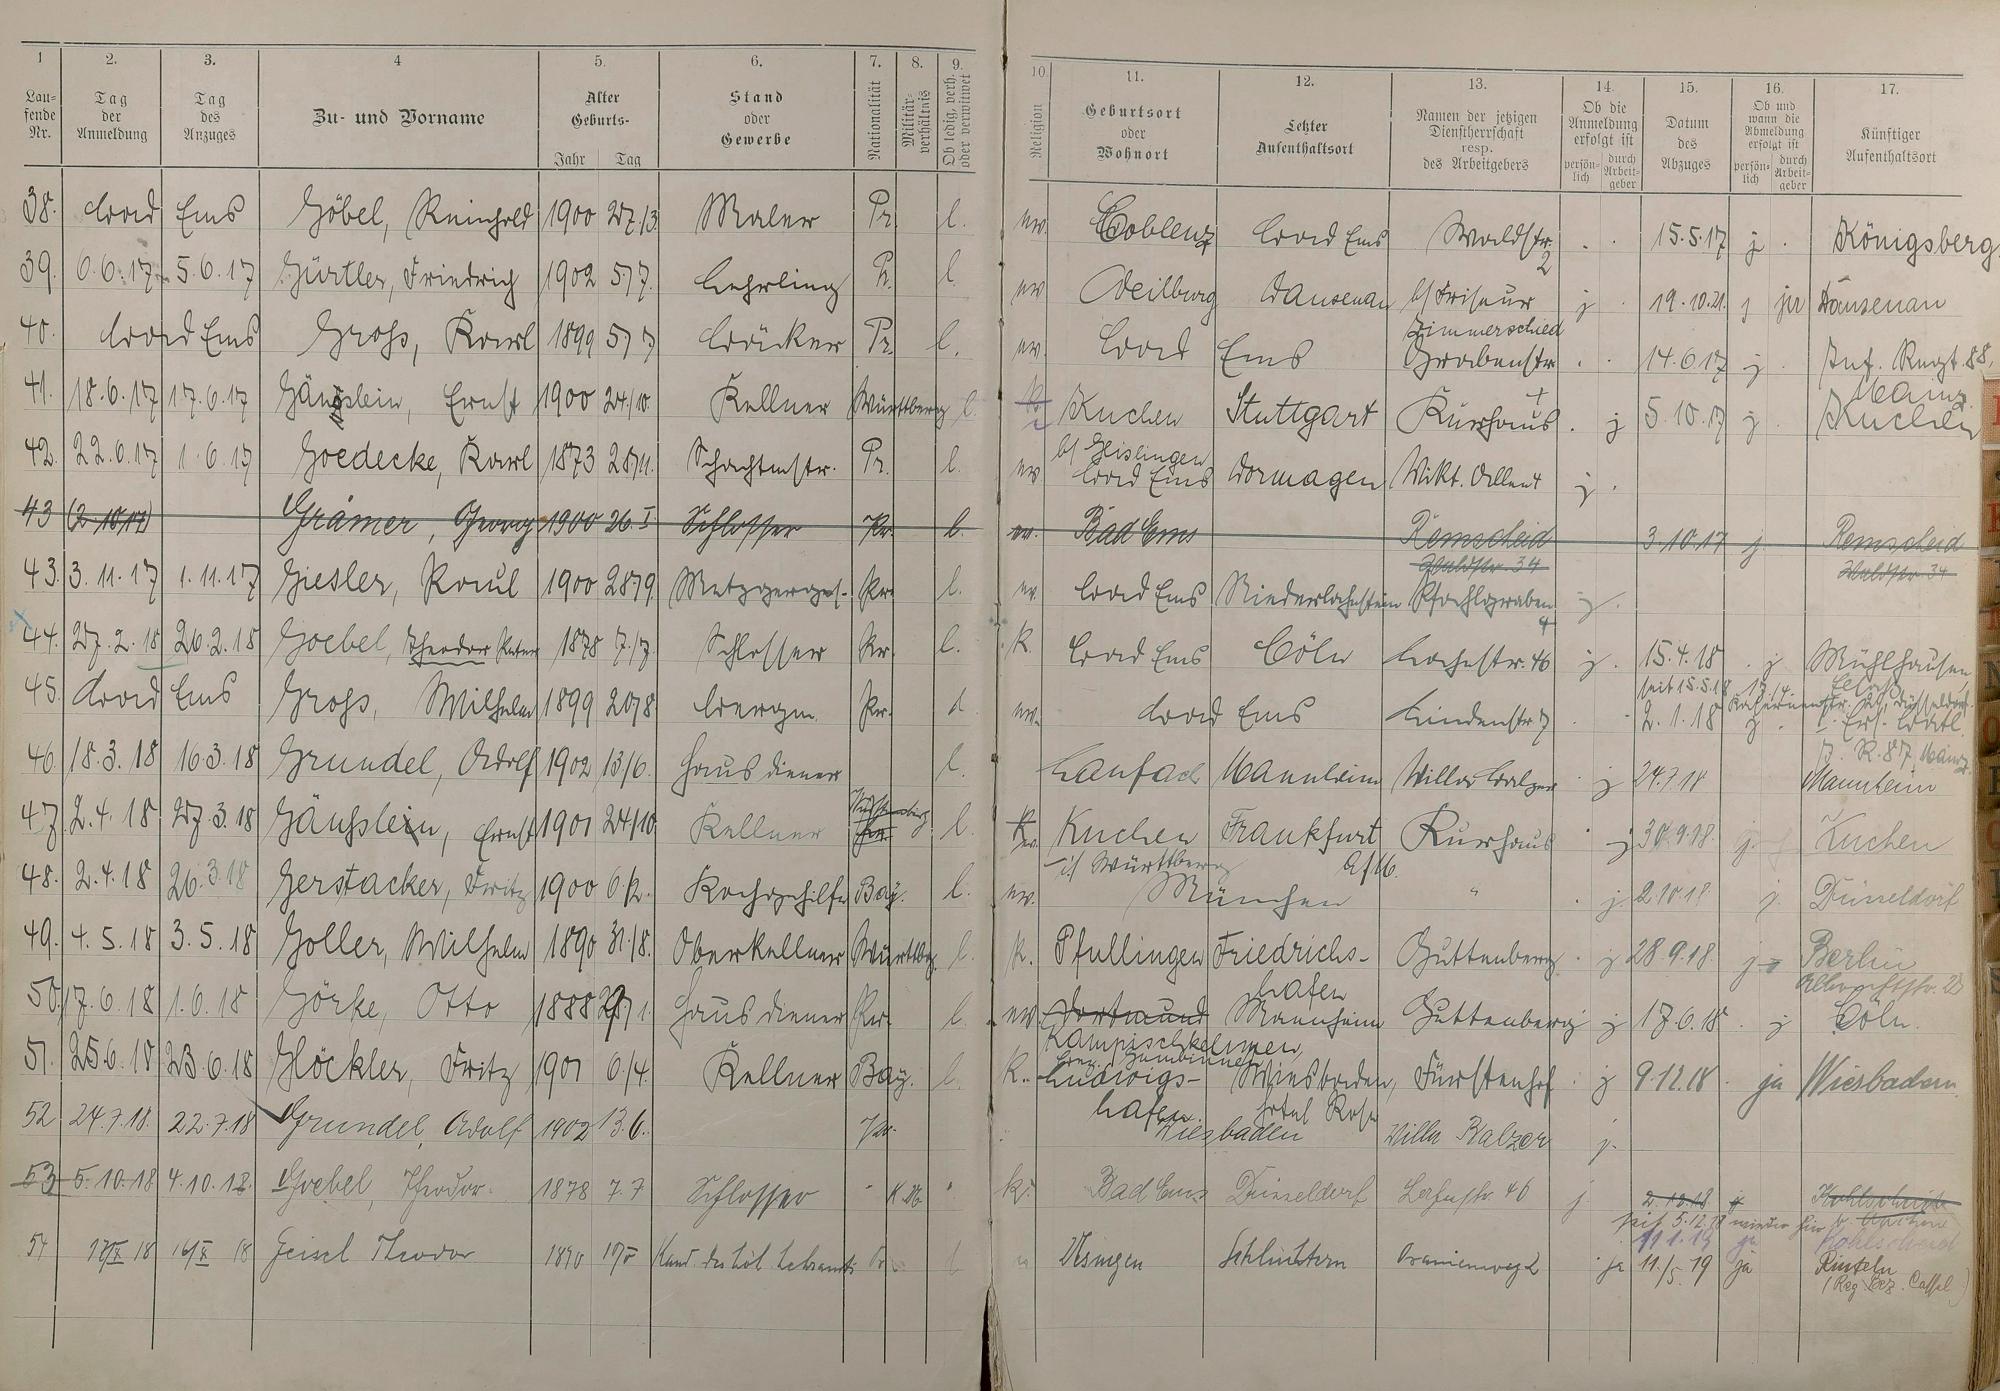 1 2. 3. 4 5. 6. 7. 8. 9. 10. 11. 12. 13. 14. 15. 16. 17.
Lau-fende Nr. Tag der Anmeldung Tag des Anzuges Zu- und Vorname Alter Geburts- Jahr Tag Stand oder Gewerbe Nationalität Militär-verhältnis Ob ledig, verh. oder verwitwet Religion Geburtsort oder Wohnort Letzter Aufenthaltsort Namen der jetzigen Dienstherrschaft resp. des Arbeitgebers Ob die Anmeldung erfolgt ist persön-lich durch Arbeit-geber Datum des Abzuges Ob und wann die Abmeldung erfolgt ist persön-lich durch Arbeit-geber Künftiger Aufenthaltsort
38. Bad Ems Göbel, Reinhold 1900 27/3 Maler Pr. l. ev. Coblenz Bad Ems Waldstr. 2 15.5.17 j Königsberg
39. 6.6.17 5.6.17 Gürtler, Friedrich 1902 5/7. Lehrling Pr. l. ev Weilburg Dausenau b/ Friseur Zimmerschied j 19.10.21. j Dausenau
40. Bad Ems Groß, Karl 1899 5/7 Bäcker Pr. l. ev. Bad Ems Grabenstr. 14.6.17 j Inf. Regt. 88, Mainz
41. 18.6.17 17.6.17 Gänßlein, Ernst 1900 24/10. Kellner Württberg l. Kuchen b/ Geislingen Stuttgart Kurhaus j 5.10.17 j Kuchen
42. 22.6.17 1.6.17 Goedecke, Karl 1873 28/11. Schachtmstr. Pr. l. ev. Bad Ems Dormagen Vikt. Allee 4 j
43 (2.10.17) Gramer, Georg 1900 26.I Schlosser Pr. l. ev. Bad Ems Remscheid Waldstr. 34 3.10.17 j Remscheid Waldstr. 34
43. 3.11.17 1.11.17 Giesler, Paul 1900 28/9. Metzgerges. Pr. l. ev. Bad Ems Niederlahnstein Pfahlgraben 4 j.
44. 27.2.18 26.2.18 Goebel, Theodor Peter 1878 7/7. Schlosser Pr. l. k. Bad Ems Cöln Lahnstr. 46 j. 15.4.18 j Mühlhausen,
45. Bad Ems Groß, Wilhelm 1899 20/8 Bergm. Pr. l ev. Bad Ems Lindenstr. 7 2.1.18 j Ers. Batl. J. R. 87, Mainz.
46. 18.3.18 16.3.18 Grundel, Adolf 1902 13/6. Hausdiener l. Laufach Mannheim Villa Balzer j 24.7.18 Mannheim
47. 2.4.18 27.3.18 Gänßlein, Ernst 1901 24/10 Kellner Württemberg l. ev. Kuchen i/ Württberg Frankfurt a/M. Kurhaus j 30.9.18. j. Kuchen
48. 2.4.18 26.3.18 Gerstacker, Fritz 1900 6.12. Kochgehilfe Bay. l. ev. München " j. 2.10.18 j. Düsseldorf
49. 4.5.18 3.5.18 Goller, Wilhelm 1890 31./8. Oberkellner Württbg. l. k. Pfullingen Friedrichs-hafen Guttenberg j 28.9.18. j Berlin
50. 17.6.18 1.6.18 Görke, Otto 1888 29/1. Hausdiener Pr. l. ev Dortmund Kampischkehmen, Bez. Gumbinnen Mannheim Guttenberg j 17.6.18. j Cöln.
51. 25.6.18 23.6.18 Glöckler, Fritz 1901 6./4. Kellner Bay. l. k. Ludwigs-hafen. Wiesbaden, Hotel Rose Fürstenhof j 9.12.18. ja Wiesbaden.
52 24.7.18. 22.7.18 Grundel, Adolf 1902 13.6. Pr. Wiesbaden Villa Balzer j.
53 5.10.18 4.10.18. Goebel, Theodor. 1878 7.7 Schlosser " " k. Bad Ems Düsseldorf Lahnstr. 46 j 2.12.18 j Kohlscheid
seit 5.12.18 wieder hier
11.1.19 ja Kohlscheid
54 17/X 18 16/X 18 Geisel Theodor 1890 Kand. des höh. Lehramts Pr. l Usingen Schlüchtern Oranienweg 2 ja 11./5.19 ja Rinteln (Reg. Bez. Cassel)